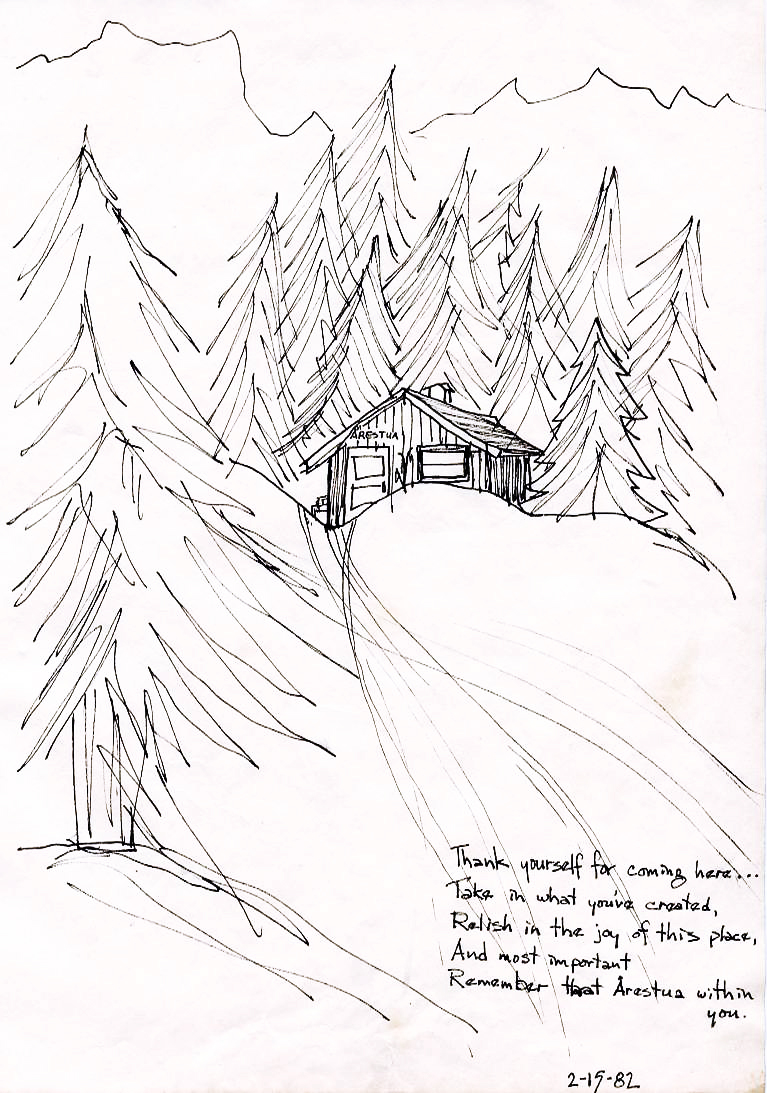 ÅRESTUA
Thank yourself for coming here...
Take in what you've created,
Relish in the joy of this place,
And most important
Remember that Årestua within
you.
2-15-82